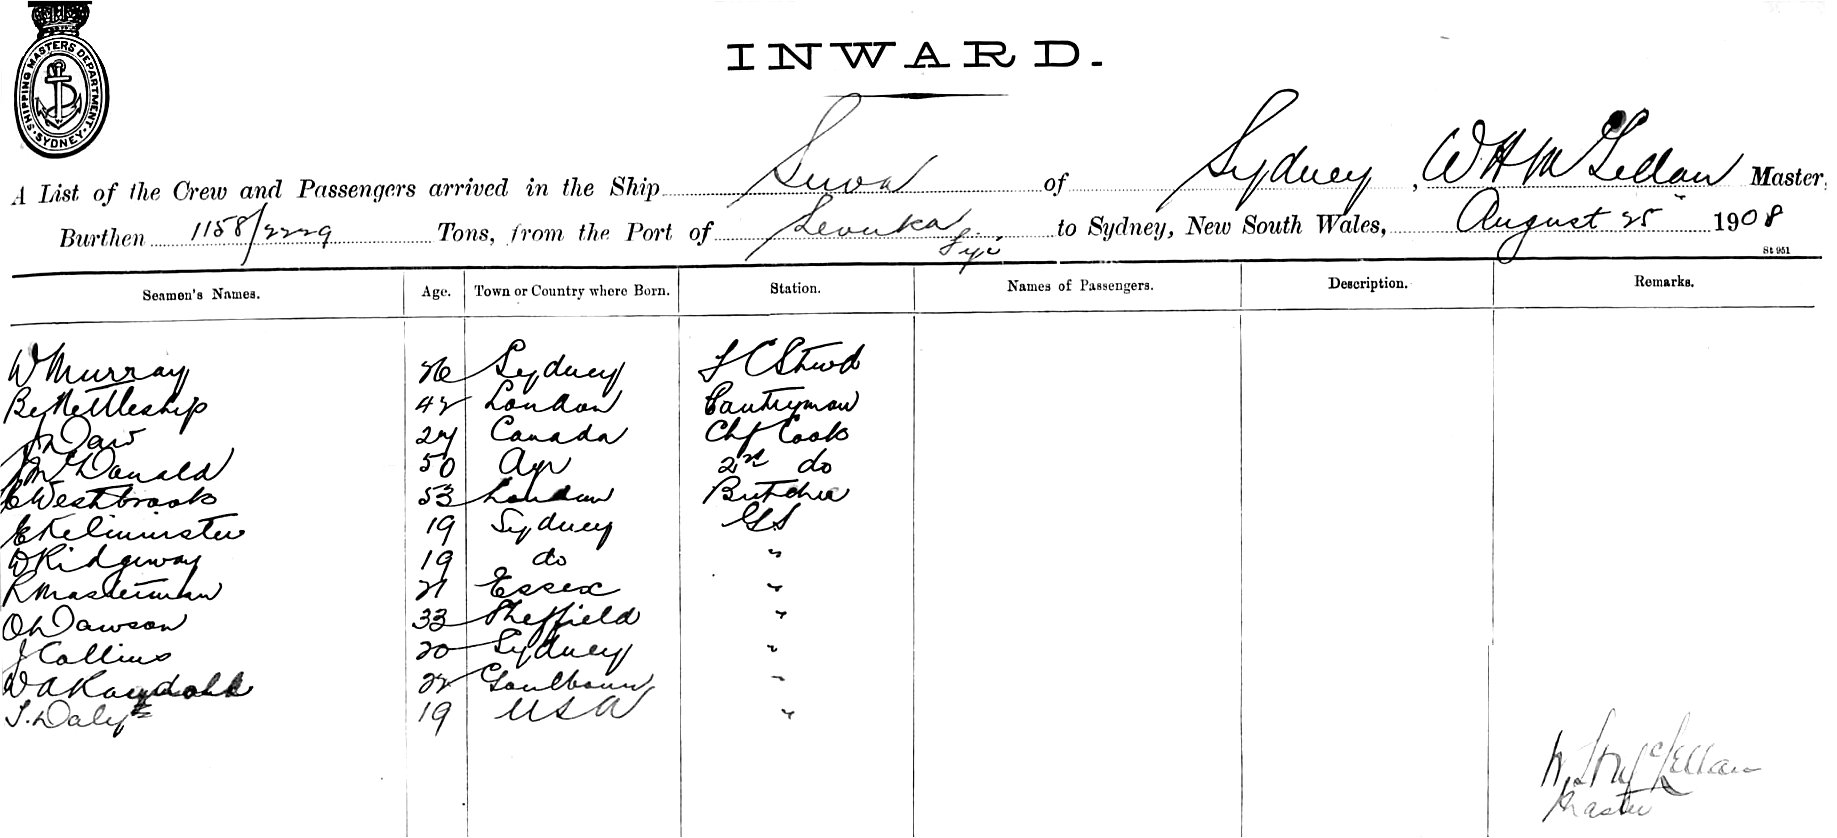 SHIPPING MASTERS DEPARTMENT. SYDNEY
INWARD.
A List of the Crew and Passengers arrived in the Ship Suva of Sydney, W H McLellan Master,
Burthen 1158/2229 Tons, from the Port of Levuka Fiji to Sydney, New South Wales, August 25" 1908
St 951
Seamen's Names. Age. Town or Country where Born. Station. Names of Passengers. Description. Remarks.
W Murray 26 Sydney F C Stwd
By Nettleship 42 London Pantryman
J Daw 24 Canada Chf Cook
J McDonald 50 Ayr 2nd do
C Westbrook 53 London Butcher
E Kelminster 19 Sydney GS
D Ridgeway 19 do "
R Masterman 21 Essex "
O Dawson 33 Sheffield "
J Collins 20 Sydney "
W A Randall 22 Goulbourn "
T. Daly 19 USA "
McLellan
Master